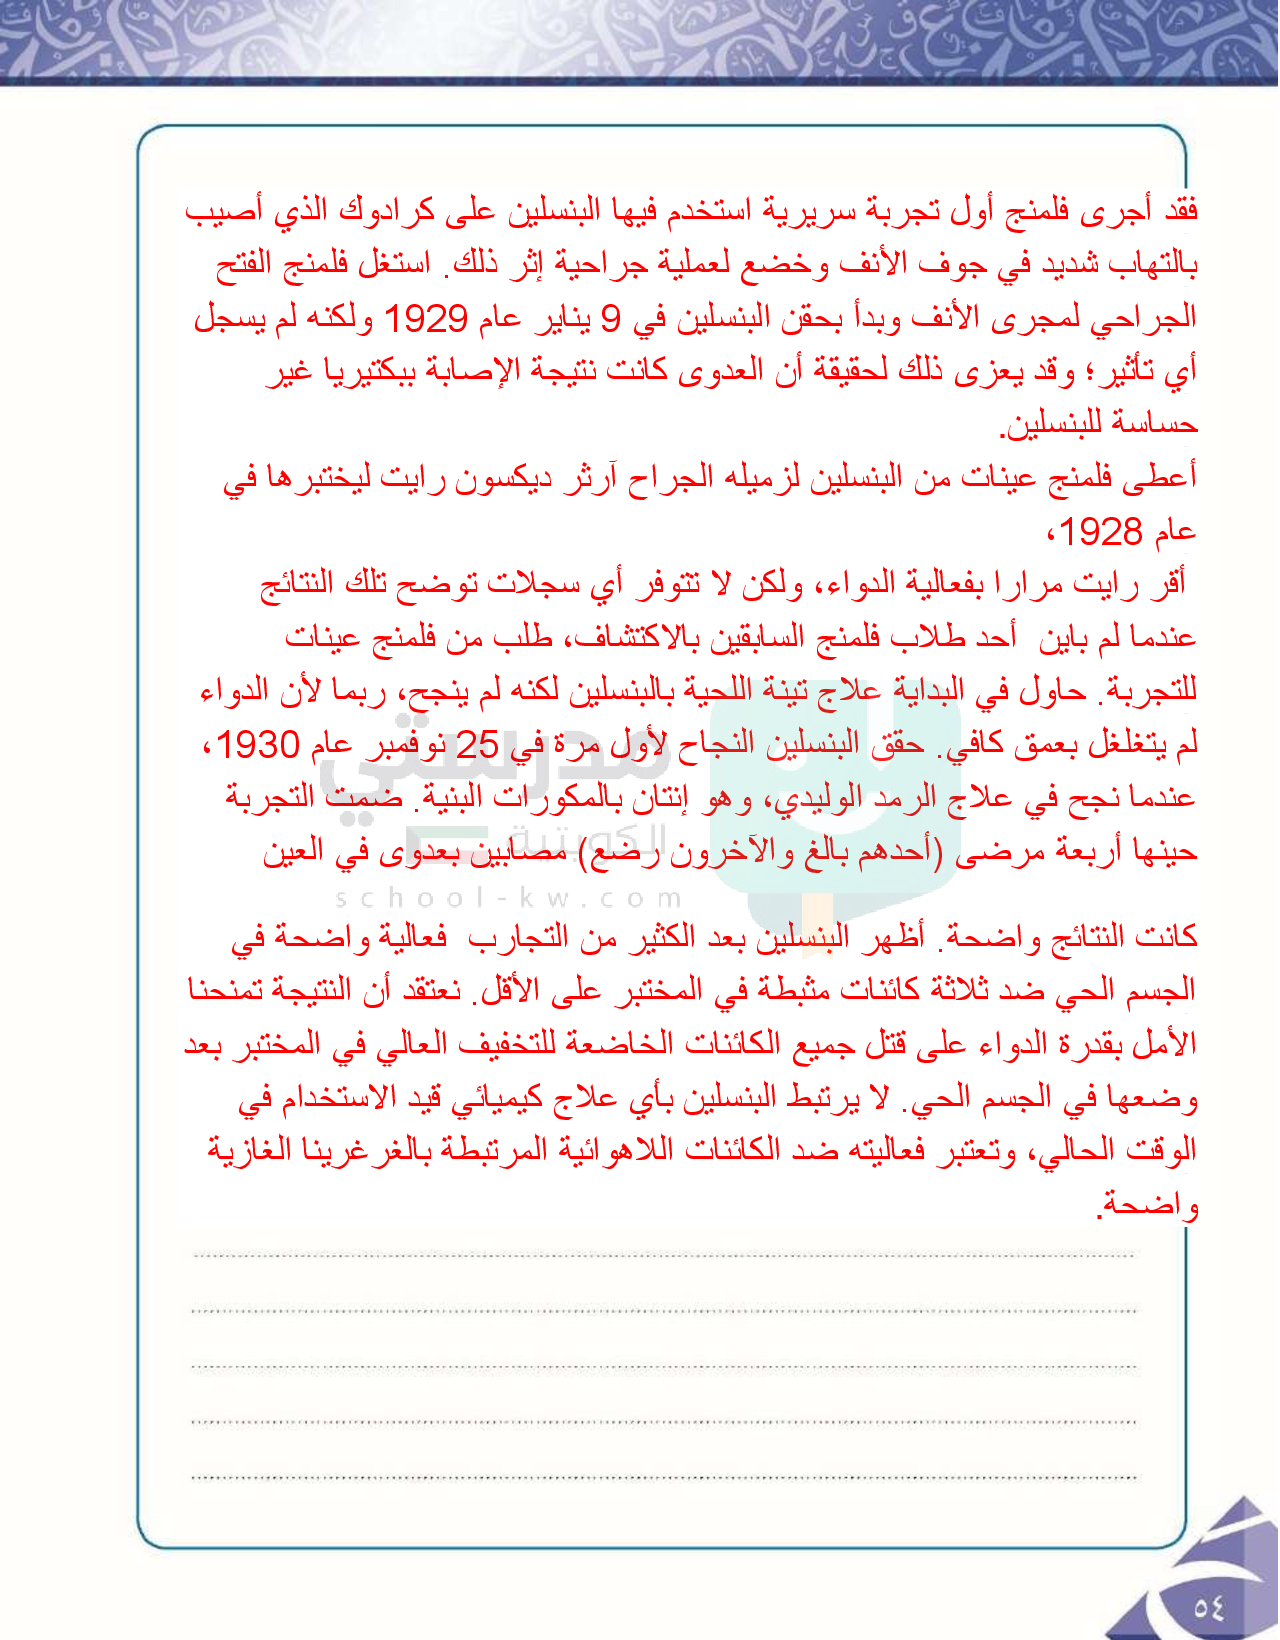 فقد أجرى فلمنج أول تجربة سريرية استخدم فيها البنسلين على كرادوك الذي أصيب
بالتهاب شديد في جوف الأنف وخضع لعملية جراحية إثر ذلك. استغل فلمنج الفتح
الجراحي لمجرى الأنف وبدأ بحقن البنسلين في 9 يناير عام 1929 ولكنه لم يسجل
أي تأثير؛ وقد يعزى ذلك لحقيقة أن العدوى كانت نتيجة الإصابة ببكتيريا غير
حساسة للبنسلين.
أعطى فلمنج عينات من البنسلين لزميله الجراح آرثر ديكسون رايت ليختبرها في
عام 1928،
أقر رايت مرارا بفعالية الدواء، ولكن لا تتوفر أي سجلات توضح تلك النتائج
عندما لم باين أحد طلاب فلمنج السابقين بالاكتشاف، طلب من فلمنج عينات
للتجربة. حاول في البداية علاج تينة اللحية بالبنسلين لكنه لم ينجح، ربما لأن الدواء
لم يتغلغل بعمق كافي. حقق البنسلين النجاح لأول مرة في 25 نوفمبر عام 1930،
عندما نجح في علاج الرمد الوليدي، وهو إنتان بالمكورات البنية. ضمت التجربة
حينها أربعة مرضى (أحدهم بالغ والآخرون رضع) مصابين بعدوى في العين
مدرستي
الكويتية
school-kw.com
كانت النتائج واضحة. أظهر البنسلين بعد الكثير من التجارب فعالية واضحة في
الجسم الحي ضد ثلاثة كائنات مثبطة في المختبر على الأقل. نعتقد أن النتيجة تمنحنا
الأمل بقدرة الدواء على قتل جميع الكائنات الخاضعة للتخفيف العالي في المختبر بعد
وضعها في الجسم الحي. لا يرتبط البنسلين بأي علاج كيميائي قيد الاستخدام في
الوقت الحالي، وتعتبر فعاليته ضد الكائنات اللاهوائية المرتبطة بالغرغرينا الغازية
واضحة.
٥٤